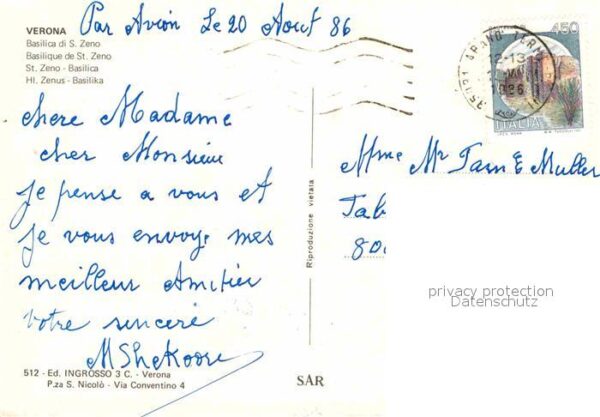 Par Avion Le 20 Aout 86
VERONA
Basilica di S. Zeno
Basilique de St. Zeno
St. Zeno - Basilica
Hl. Zenus - Basilika
chere Madame
cher Monsieur
Je pense a vous et
Je vous envoye mes
meilleur Amitier
votre sinceré
MShekoore
512 - Ed. INGROSSO 3 C. - Verona
P.za S. Nicolò - Via Conventino 4
Riproduzione vietata
SAR
450
ITALIA
ABANO TERME
12-13
Mme Mr Tarn E Muller
Tab
800
privacy protection
Datenschutz